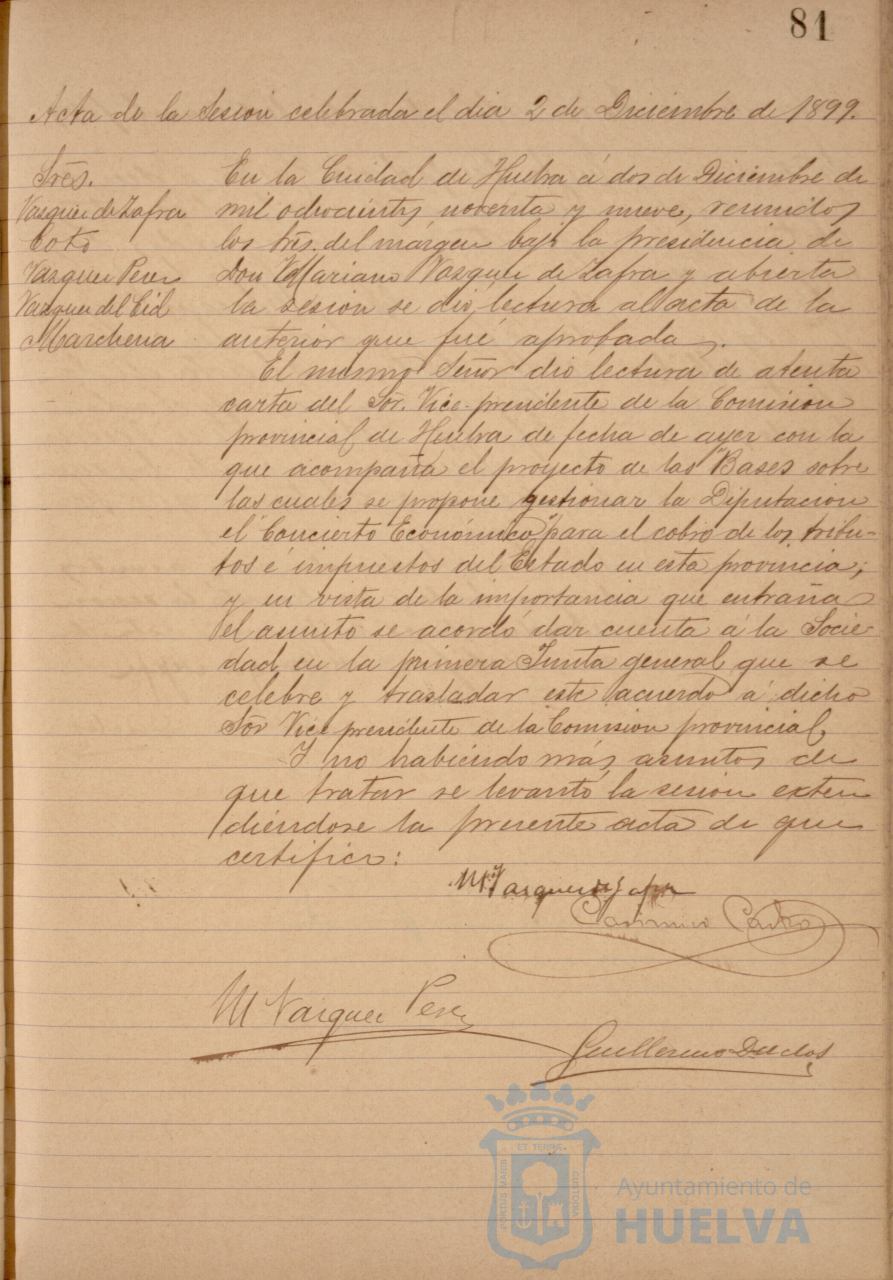 81
Acta de la Sesion celebrada el dia 2 de Diciembre de 1899.
Srēs.
Vazquez de Zafra
Coto
Vazquez Perez
Vazquez del Cid
Marchena
En la Ciudad de Huelva á dos de Diciembre de
mil ochocientos noventa y nueve, reunidos
los Srēs. del márgen bajo la presidencia de
Don Mariano Vazquez de Zafra y abierta
la sesion se dio lectura al acta de la
anterior que fué aprobada.
El mismo Señor dio lectura de atenta
carta del Sōr. Vice-presidente de la Comision
provincial de Huelva de fecha de ayer con la
que acompaña el proyecto de las "Bases sobre
las cuales se propone gestionar la Diputacion
el Concierto Económico" para el cobro de los tribu-
tos é impuestos del Estado en esta provincia;
y en vista de la importancia que entraña
el asunto se acordó dar cuenta á la Socie-
dad en la primera Junta general que se
celebre y trasladar este acuerdo á dicho
Sōr Vice presidente de la Comision provincial.
Y no habiendo más asuntos de
que tratar se levantó la sesion exten
diéndose la presente acta de que
certifico:
M. Vazquez de Zafra
Casimiro Castro
M Vazquez Perez
Guillermo Duclos
PORTUS MARIS
ET TERRAE
CUSTODIA
Ayuntamiento de
HUELVA